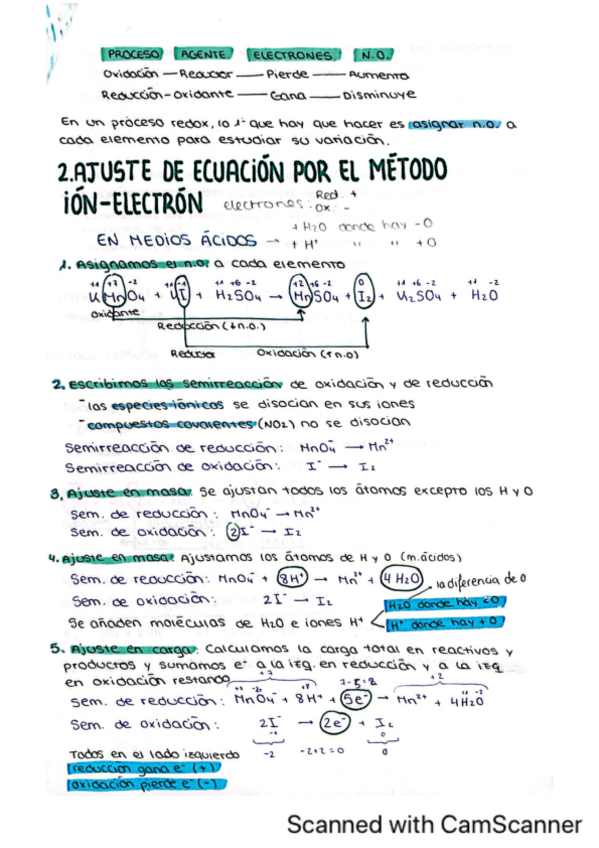 PROCESO AGENTE ELECTRONES N.O.
Oxidación — Reductor — Pierde — Aumenta
Reducción - Oxidante — Gana — Disminuye
En un proceso redox, lo 1º que hay que hacer es asignar n.o. a
cada elemento para estudiar su variación.
2. AJUSTE DE ECUACIÓN POR EL MÉTODO
IÓN-ELECTRÓN electrones: Red. + Ox. -
+ H2O donde hay -O
EN MEDIOS ÁCIDOS → + H⁺ " " +O
1. Asignamos el n.o. a cada elemento
+1 +7 -2 +1 -1 +1 +6 -2 +2 +6 -2 0 +1 +6 -2 +1 -2
KMnO4 + KI + H2SO4 → MnSO4 + I2 + K2SO4 + H2O
Oxidante
Reducción (↓n.o.)
Reductor Oxidación (↑n.o)
2. Escribimos las semirreacción de oxidación y de reducción
- las especies iónicas se disocian en sus iones
- compuestos covalentes (NO2) no se disocian
Semirreacción de reducción: MnO4⁻ → Mn²⁺
Semirreacción de oxidación: I⁻ → I2
3. Ajuste en masa: Se ajustan todos los átomos excepto los H y O
Sem. de reducción: MnO4⁻ → Mn²⁺
Sem. de oxidación: 2I⁻ → I2
4. Ajuste en masa: Ajustamos los átomos de H y O (m.ácidos)
Sem. de reducción: MnO4⁻ + 8H⁺ → Mn²⁺ + 4H2O la diferencia de O
Sem. de oxidación: 2I⁻ → I2 H2O donde hay <O
Se añaden moléculas de H2O e iones H⁺ H⁺ donde hay + O
5. Ajuste en carga: Calculamos la carga total en reactivos y
productos y sumamos e⁻ a la izq. en reducción y a la izq
en oxidación restando +7 +2
Sem. de reducción: MnO4⁻ + 8H⁺ + 5e⁻ → Mn²⁺ + 4H2O
Sem. de oxidación: 2I⁻ → 2e⁻ + I2
-1 0
Todos en el lado izquierdo -2 -2+2=0 0
reducción gana e⁻ (+)
oxidación pierde e⁻ (-)
Scanned with CamScanner